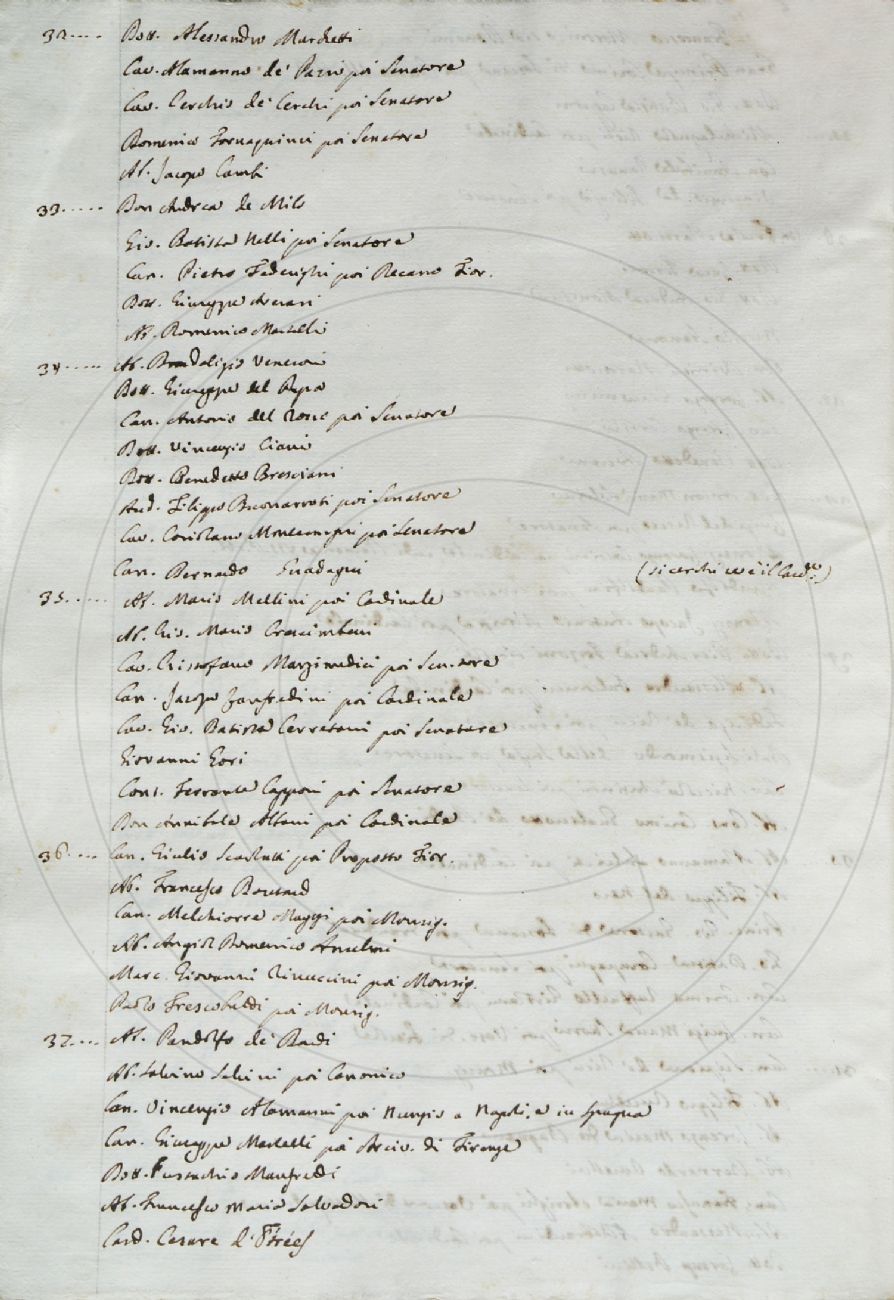 32.... Dott. Alessandro Marchetti
Cav. Alamanno de' Pazzi poi Senatore
Cav. Cerchio de' Cerchi poi Senatore
Domenico Tornaquinci poi Senatore
Ab. Jacopo Cambi
33..... Don Andrea de Milo
Gio. Batista Nelli poi Senatore
Can. Pietro Federighi poi Decano Fior.
Dott. Giuseppe Averani
Ab. Domenico Martelli
34..... Ab. Bandaligio Venerosi
Dott. Giuseppe del Papa
Cav. Antonio del Rosso poi Senatore
Dott. Vincenzio Ciani
Dott. Benedetto Bresciani
Aud. Filippo Buonarroti poi Senatore
Cav. Coriolano Montemagni poi Senatore
Can. Bernardo Guadagni (si cerchi se è il Card.le)
35..... Ab. Mario Mellini poi Cardinale
Ab. Gio. Mario Crescimbeni
Cav. Cristofano Marzimedici poi Senatore
Can. Jacopo Zanfredini poi Cardinale
Cav. Gio. Batista Cerretani poi Senatore
Giovanni Gori
Cont. Ferrante Capponi poi Senatore
Don Annibale Albani poi Cardinale
36.... Can. Giulio Scarlatti poi Proposto Fior.
Ab. Francesco
Can. Melchiorre Maggi poi Monsig.
Ab. Angiol Domenico Ancelmi
Marc. Giovanni Rinuccini poi Monsig.
Paolo Frescobaldi poi Monsig.
37.... Ab. Pandolfo de' Bardi
Ab. Salvino Salvini poi Canonico
Can. Vincenzio Alamanni poi Nunzio a Napoli, e in Spagna
Can. Giuseppe Martelli poi Arciv. di Firenze
Dott. Eustachio Manfredi
Ab. Francesco Maria Salvadori
Card. Cesare d'Etrées